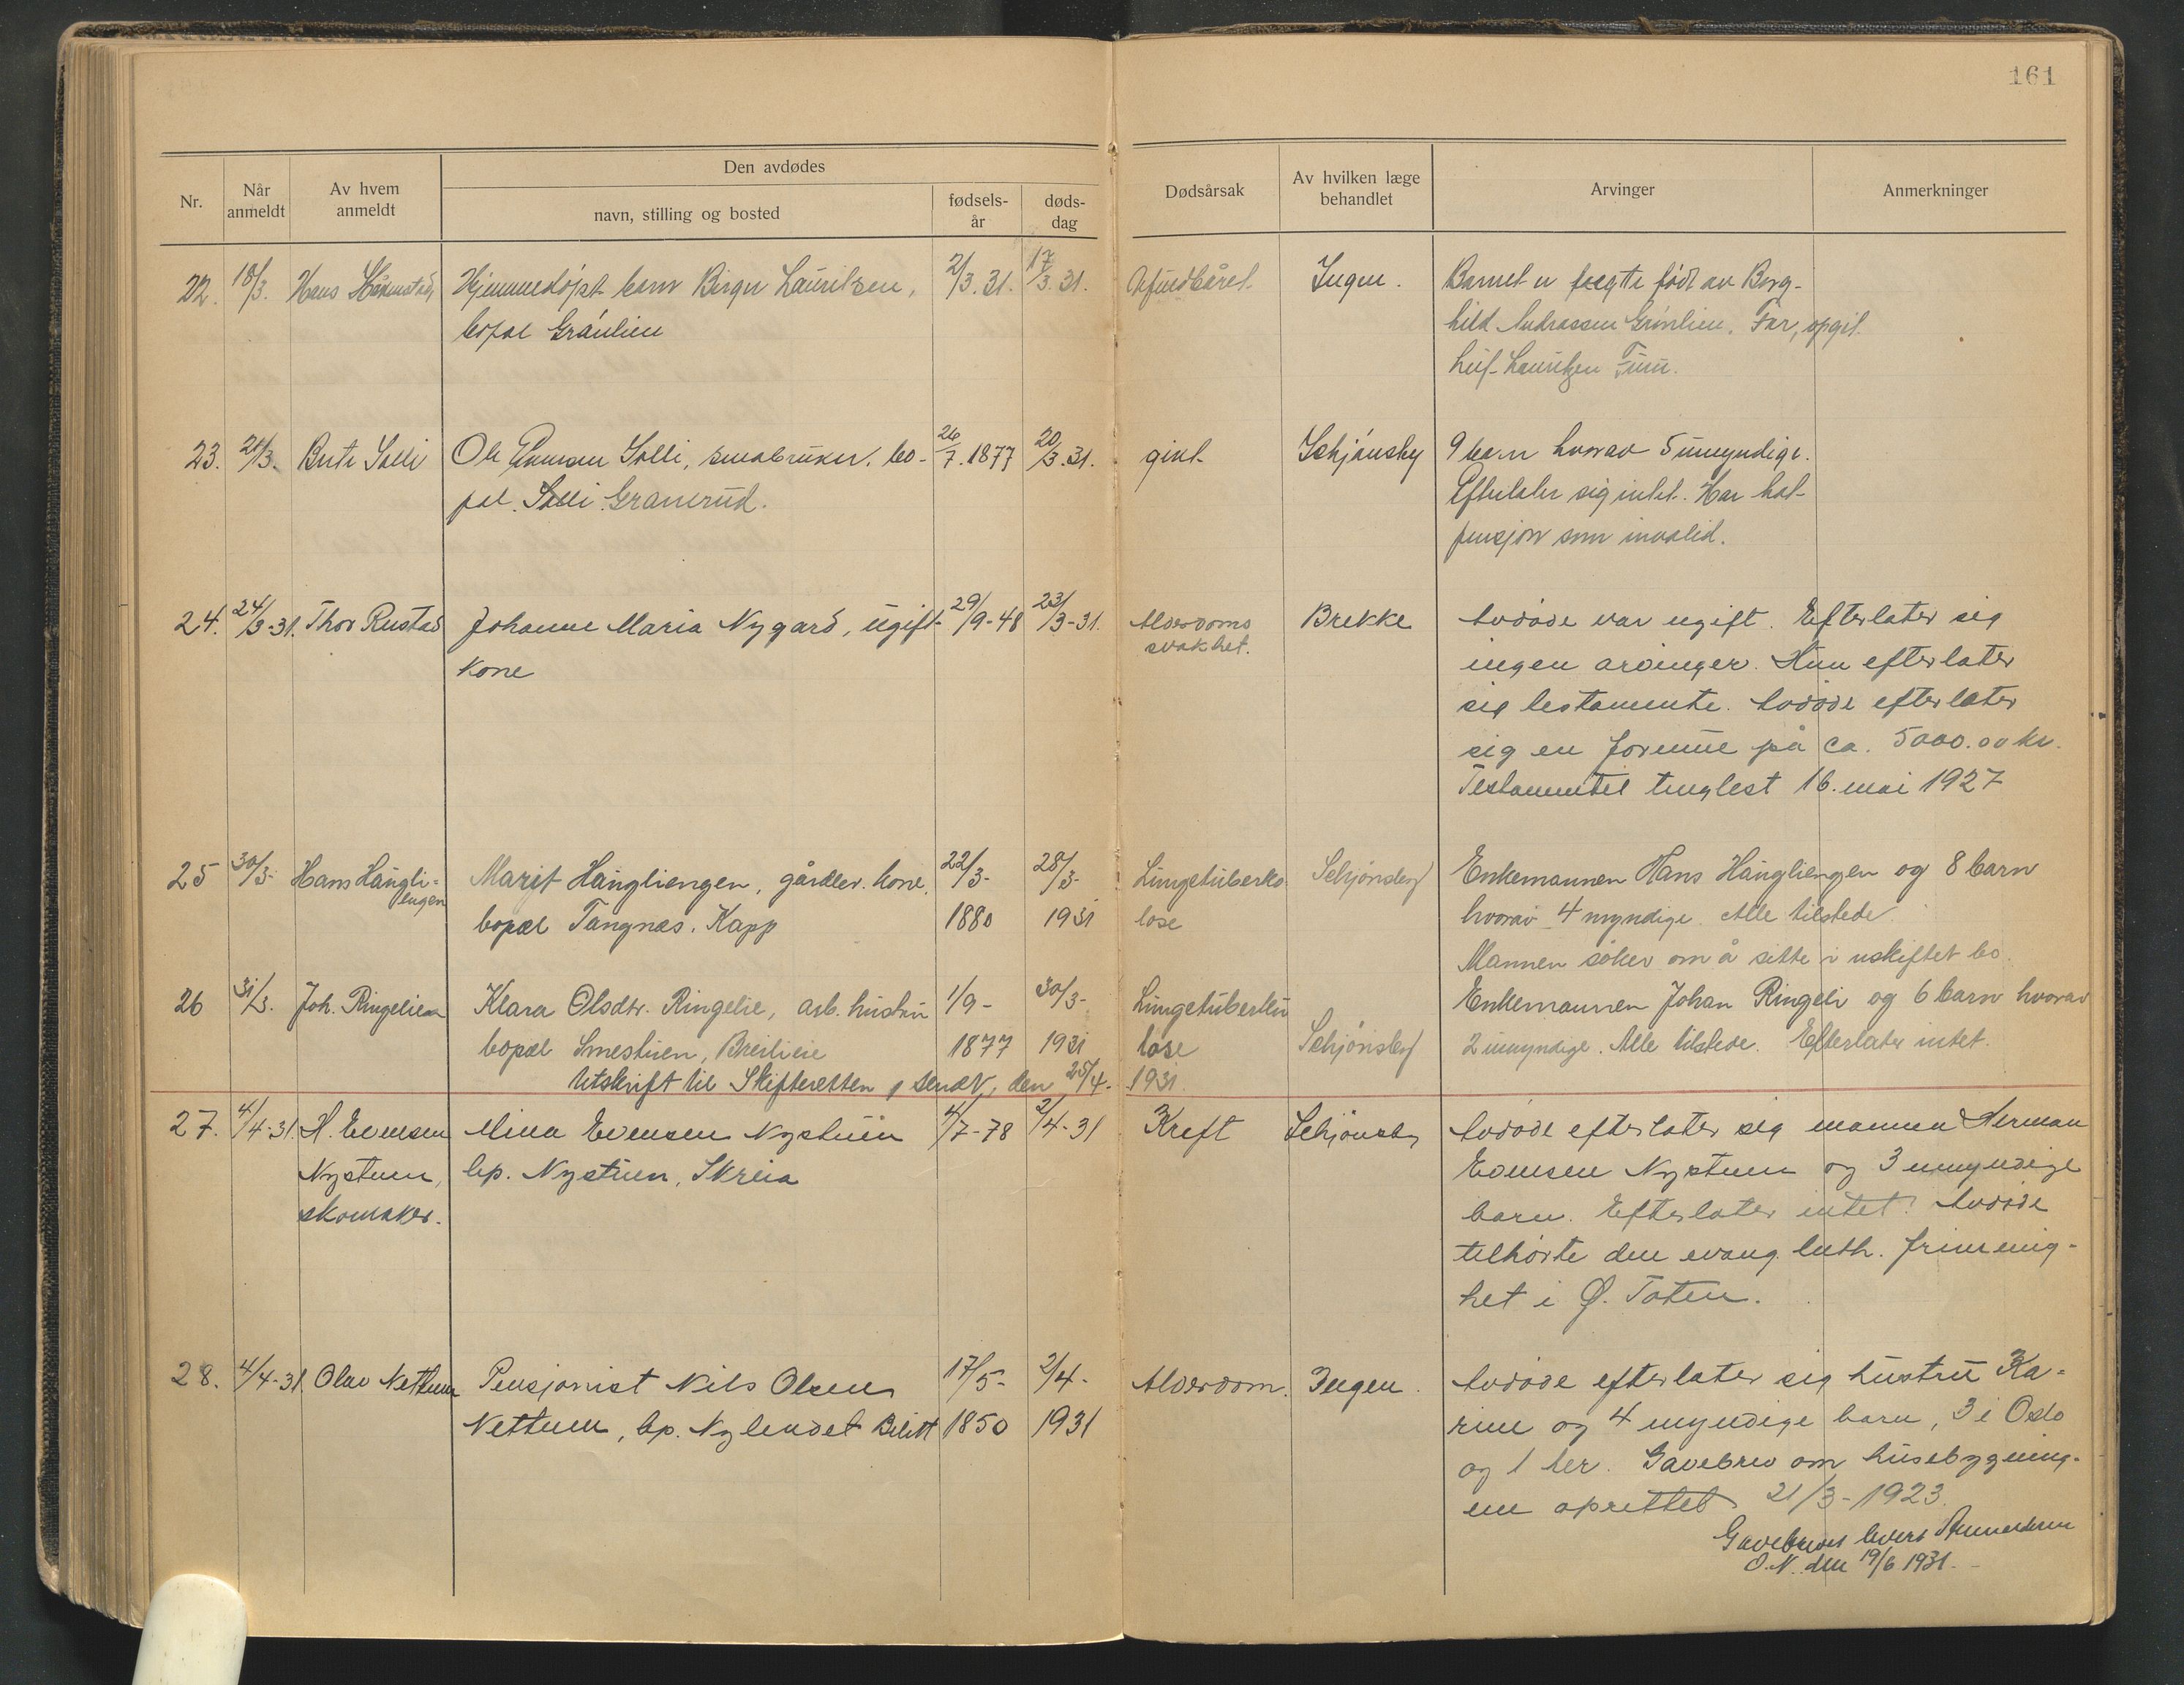 161
Den avdødes
Nr. Når anmeldt Av hvem anmeldt navn, stilling og bosted fødselsår dødsdag Dødsårsak Av hvilken læge behandlet Arvinger Anmerkninger
22. 18/3. Hans Hjemmedøpt barn Birger Lauritsen, 2/3.31. 17/3.31. Ufuldbåret Ingen. Barnet er født av Borg-
bopæl Grønlien hild Andreassen Grønlien. Far, opgit.
Leif Lauritzen Furu.
23. 21/3. Berte Solli Ole Solli, småbruker, bo- 26/7.1877 20/3.31. gikt Schjønsby 9 barn hvorav 5 umyndige.
pæl. Solli Granerud. Efterlater sig intet. Har hat
pensjon som invalid.
24. 24/3-31. Thor Rustad Johanne Maria Nygard, ugift 29/9-48 23/3-31. Alderdoms Brekke Avdøde var ugift. Efterlater sig
kone svakhet. ingen arvinger. Hun efterlater
sig testamente. Avdøde efterlater
sig en formue på ca. 5000.00 kr.
Testamentet tinglest 16. mai 1927
25 30/3- Hans Haugli- Marit Haugliengen, gårdbr. kone, 22/3- 28/3- Lungetuberko Schjønsby Enkemannen Hans Haugliengen og 8 barn
engen bopæl Tangnæs. Kapp 1880 1931 lose hvorav 4 myndige. Alle tilstede.
Mannen søker om å sitte i uskiftet bo.
26 31/3. Joh. Ringelien Klara Olsdtr. Ringelie, arb. hustru 1/9- 30/3- Lungetuberku Enkemannen Johan Ringeli og 6 barn hvorav
bopæl Smestuen, 1877 1931 lose Schjønsby 2 umyndige. Alle tilstede. Efterlater intet.
Utskrift til Skifteretten sendt, den 25/4- 1931.
27. 4/4-31. H. Evensen Mina Evensen Nystuen 4/7-78 2/4-31 Kreft Schjønsby Avdøde efterlater sig mannen Herman
Nystuen, bp. Nystuen, Skreia Evensen Nystuen og 3 umyndige
skomaker. barn. Efterlater intet. Avdøde
tilhørte den evang. luth. frimenig-
het i Ø. Toten.
28. 4/4-31 Olav Nettum Pensjonist Nils Olsen 17/5- 2/4- Alderdom. Ingen. Avdøde efterlater sig hustru Ka-
Nettum, bp. Nylendet Bilitt 1850 1931 rine og 4 myndige barn, 3 i Oslo
og 1 her. Gavebrev om husebygning-
ene oprettet 21/3-1923.
Gavebrevet levert
O.N. den 19/6 1931.-